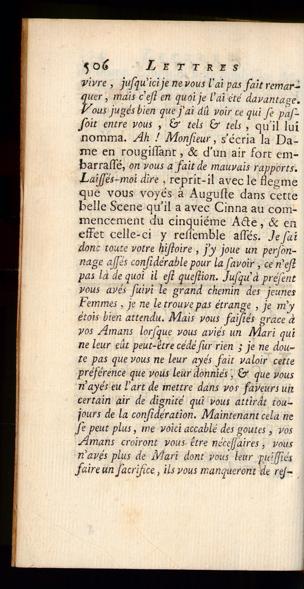 506 LETTRES
vivre, jusqu'ici je ne vous l'ai pas fait remar-
quer, mais c'est en quoi je l'ai été davantage.
Vous jugés bien que j'ai dû voir ce qui se pas-
soit entre vous, & tels & tels, qu'il lui
nomma. Ah! Monsieur, s'écria la Da-
me en rougissant, & d'un air fort em-
barrassé, on vous a fait de mauvais rapports.
Laissés-moi dire, reprit-il avec le flegme
que vous voyés à Auguste dans cette
belle Scene qu'il a avec Cinna au com-
mencement du cinquiéme Acte, & en
effet celle-ci y ressemble assés. Je sai
donc toute votre histoire, j'y joue un person-
nage assés considérable pour la savoir, ce n'est
pas là de quoi il est question. Jusqu'à présent
vous avés suivi le grand chemin des jeunes
Femmes, je ne le trouve pas étrange, je m'y
étois bien attendu. Mais vous faisiés grace à
vos Amans lorsque vous aviés un Mari qui
ne leur eût peut-être cédé sur rien; je ne dou-
te pas que vous ne leur ayés fait valoir cette
préférence que vous leur donniés, & que vous
n'ayés eu l'art de mettre dans vos faveurs un
certain air de dignité qui vous attirât tou-
jours de la considération. Maintenant cela ne
se peut plus, me voici accablé des goutes, vos
Amans croiront vous être nécessaires, vous
n'avés plus de Mari dont vous leur puissiés
faire un sacrifice, ils vous manqueront de res-